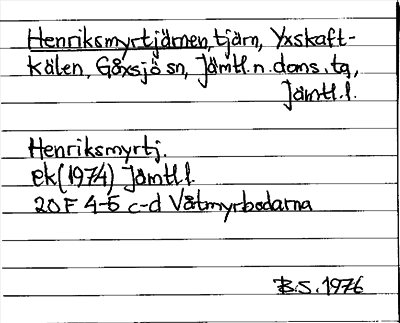 Henriksmyrtjärnen, tjärn, Yxskaft-
kälen, Gåxsjö sn, Jämtl. n. doms. tg,
Jämtl. l.
Henriksmyrtj.
ek (1974) Jämtl. l.
20 F 4-5 c-d Våtmyrbodarna
B.S. 1976